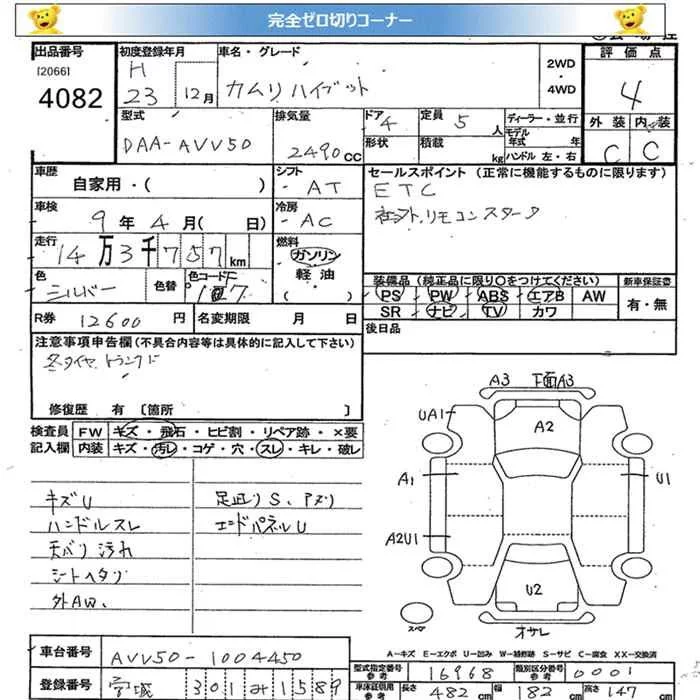 完全ゼロ切りコーナー
出品番号
[2066]
4082
初度登録年月
H
23 12月
車名・グレード
カムリハイブリット
2WD
・
4WD
評価点
4
外装 内装
C C
型式
DAA-AVV50
排気量
2490cc
ドア 4
形状
定員 5人
積載 kg
ディーラー・並行
モデル
年式 年
ハンドル 左・右
車歴
自家用・( )
シフト
AT
セールスポイント (正常に機能するものに限ります)
ETC
社外リモコンスタータ
車検
9年4月( 日)
冷房
AC
走行
14万3千757km
燃料
ガソリン
軽油
( )
色
シルバー
色替
色コード
1D7
装備品 (純正品に限り○をつけてください)
PS PW ABS エアB AW
SR ナビ TV カワ
新車保証書
有・無
R券 12600円
名変期限 月 日
後日品
注意事項申告欄 (不具合内容等は具体的に記入して下さい)
冬タイヤトランクに
修復歴 有 [箇所 ]
検査員 FW キズ・飛石・ヒビ割・リペア跡・×要
記入欄 内装 キズ・汚レ・コゲ・穴・スレ・キレ・破レ
キズU
ハンドルスレ
天バリ汚れ
シートヘタリ
外AW、
足廻りS、アズリ
エンドパネルU
A3 下面A3
UA1
A2
A1
U1
A2U1
U2
スペア
オサレ
A-キズ E-エクボ U-凹み W-補修跡 S-サビ C-腐食 XX-交換済
車台番号
AVV50-1004450
登録番号
宮城 301 み 1589
型式指定番号
参考
16968
類別区分番号
参考
0001
車体諸元用
参考
長さ 482cm
幅 182cm
高さ 147cm